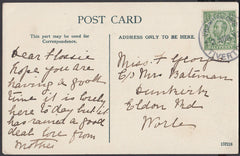 POST CARD
This part may be used for
Correspondence.
ADDRESS ONLY TO BE
WRITTEN HERE.
Dear
hope you are
having a good
time it is lovely
here to day but it
has rained a good
deal love from
Mother
Miss F George
C/o Mrs Bateman
Dunkirk
Eldon Rd
Worle